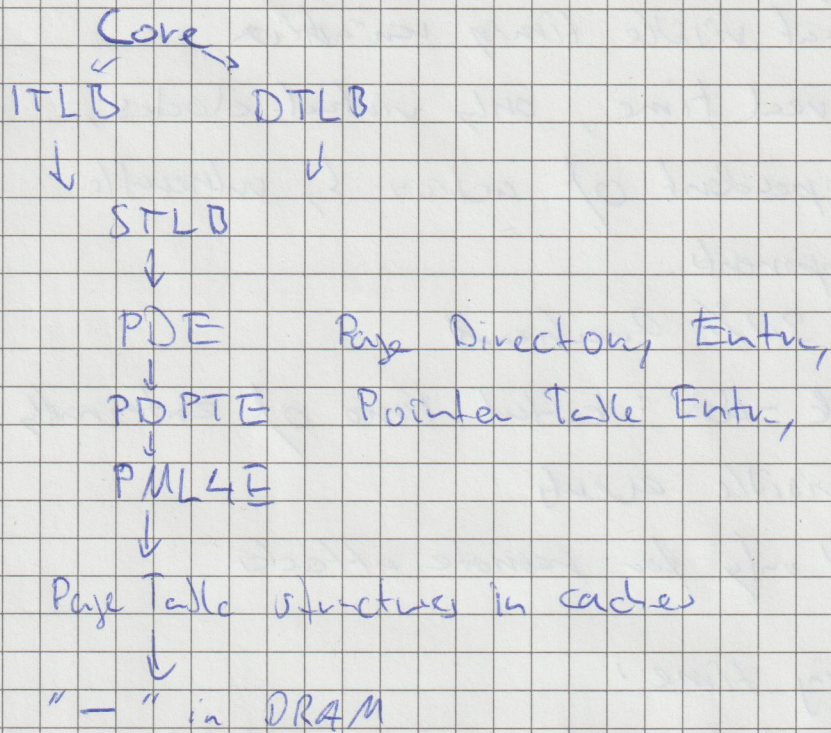 Core
ITLB DTLB
STLB
PDE Page Directory Entry
PDPTE Pointer Table Entry
PML4E
Page Table structures in caches
" — " in DRAM